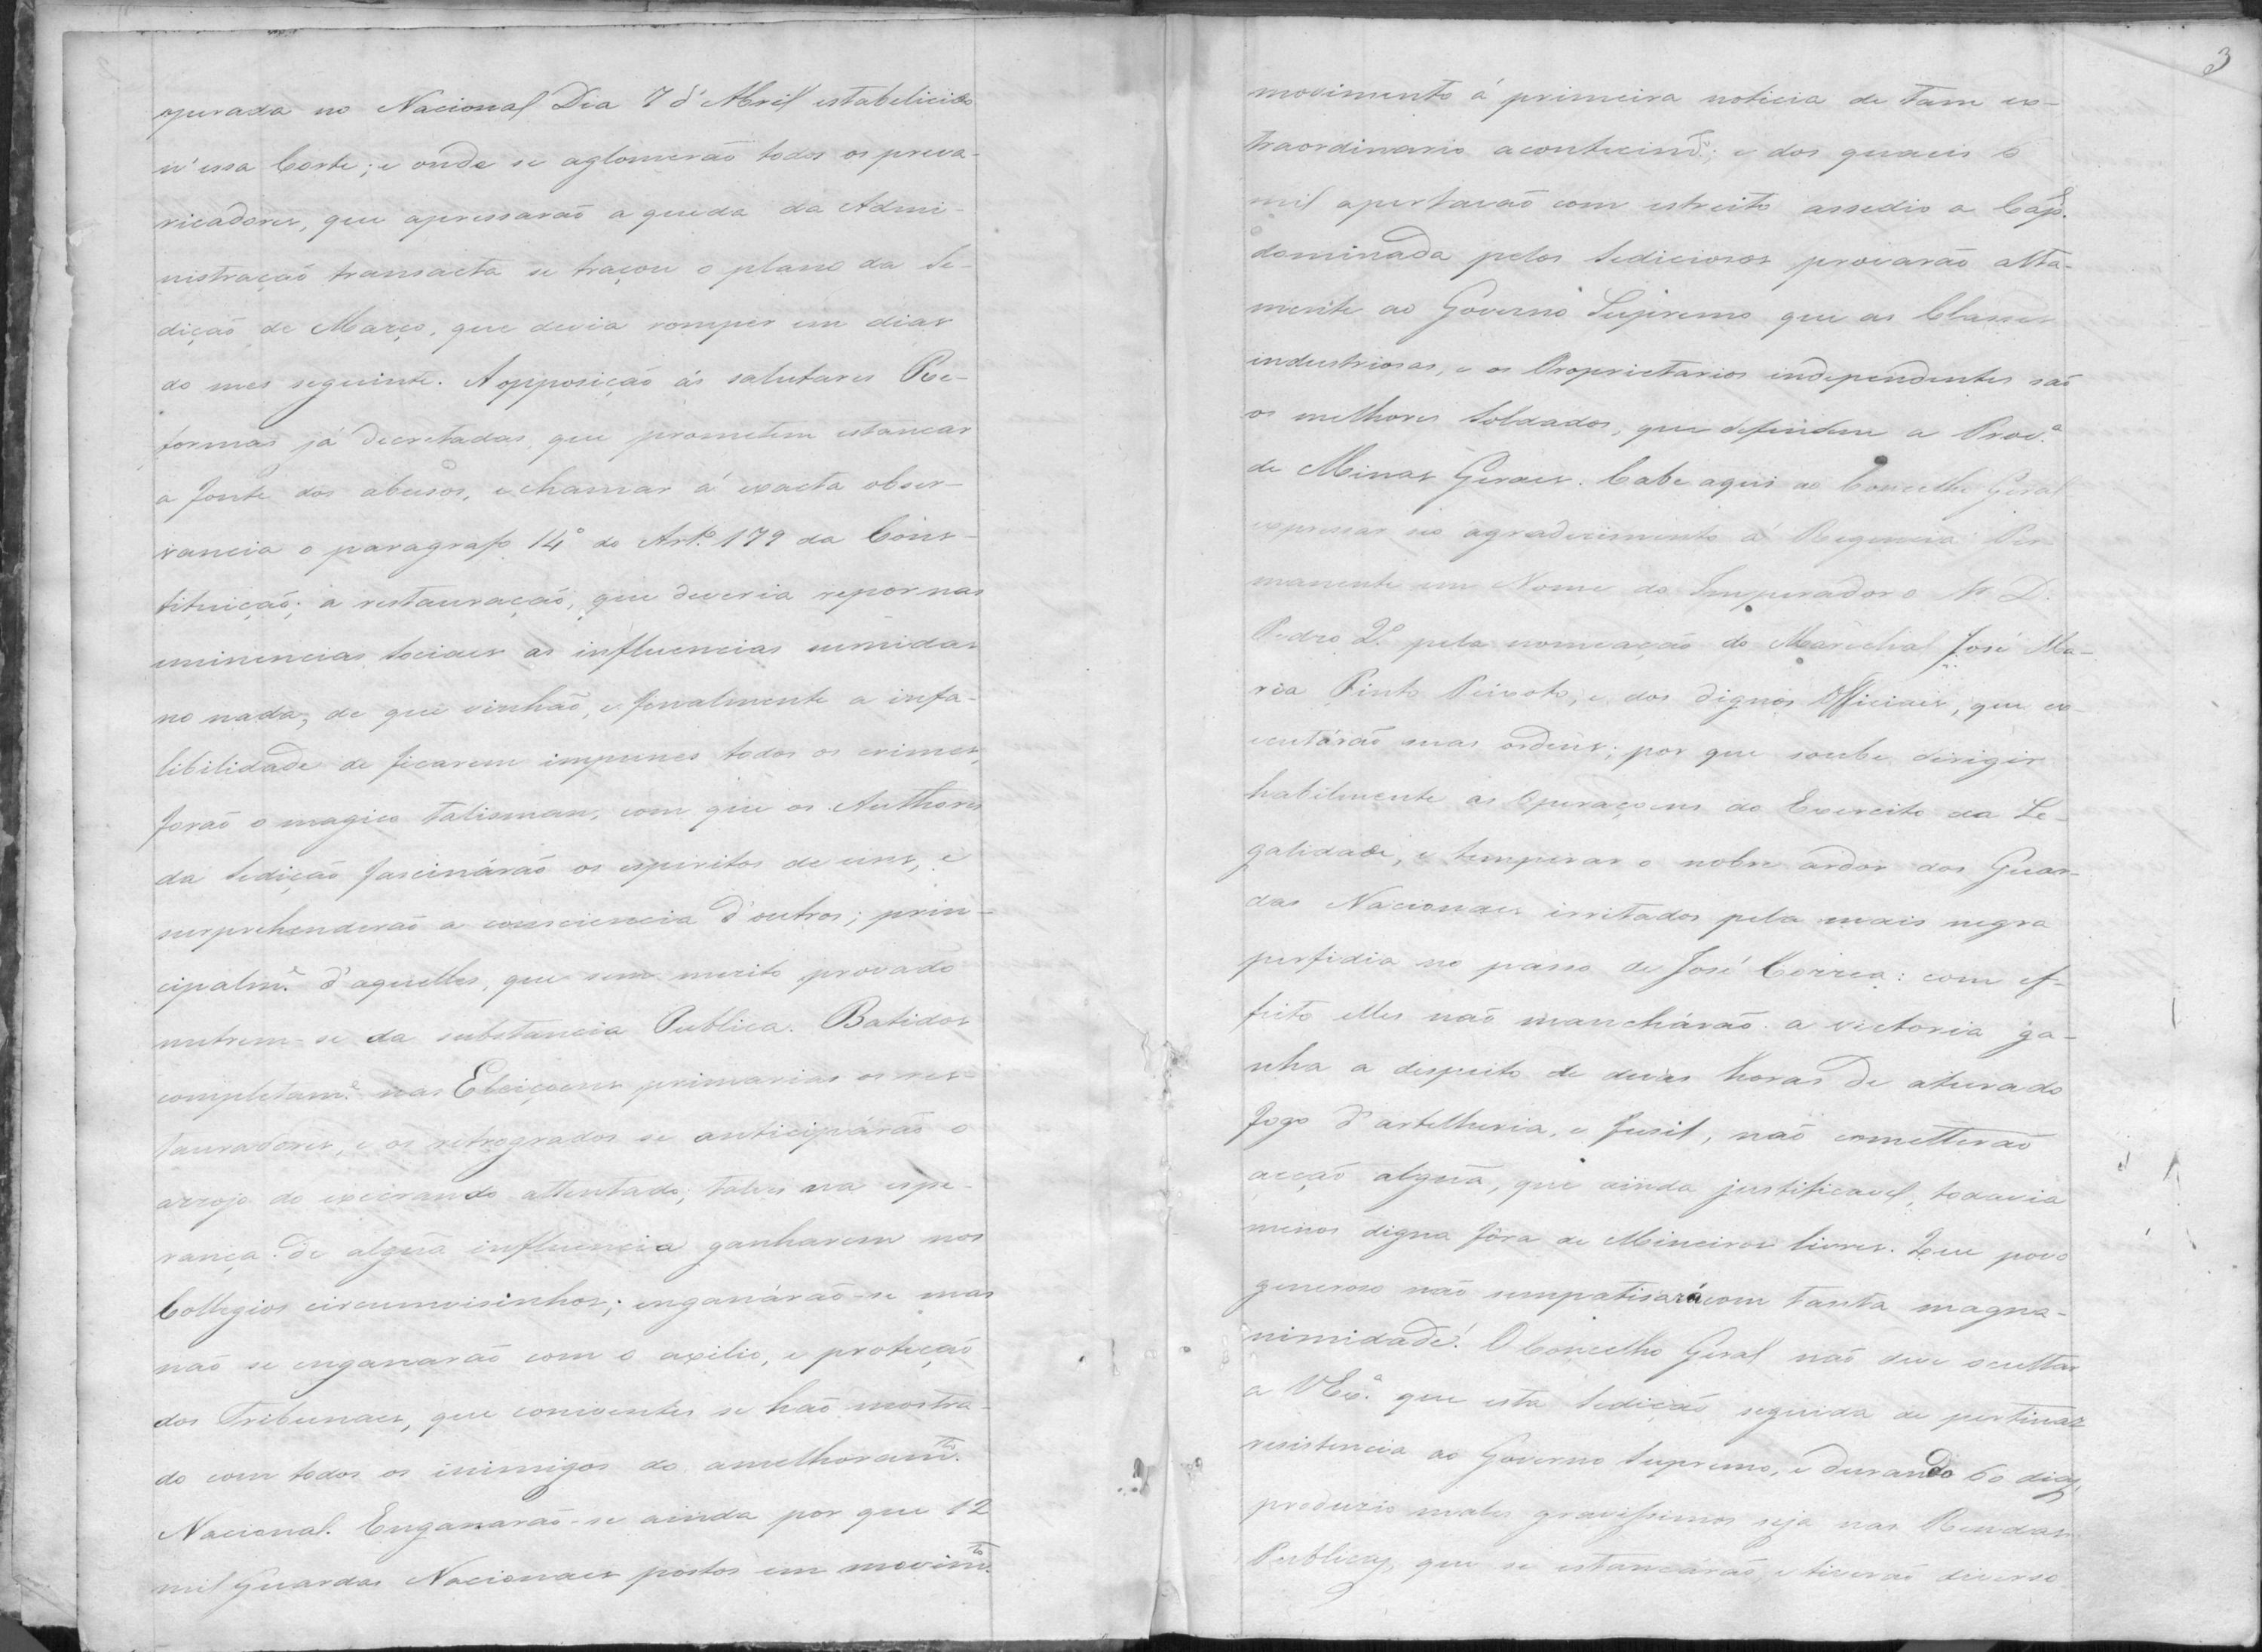 operada no Nacional Dia 7 d'Abril estabelicido
n'essa Corte; e onde se aglomerão todos os preva-
ricadores, que apressarão a queda da Admi-
nistração transacta se traçou o plano da Se-
dição de Março, que devia romper em dias
do mes seguinte. A opposição ás salutares Re-
formas já decretadas, que prometem estancar
a fonte dos abusos, e chamar á exacta obser-
vancia o paragrafo 14º do Artº 179 da Cons-
tituição; a restauração, que deveria repor nas
iminencias sociaes as influencias sumidas
no nada, de que vinhão, e finalmente a infa-
libilidade de ficarem impunes todos os crimes,
forão o magico talisman, com que os Authores
da Sedição fascinárão os espiritos de uns, e
surprehenderão a consciencia d'outros; prin-
cipalmᵉ d'aquelles, que sem merito provado
nutrem-se da substancia Publica. Batidos
completamᵉ nas Eleiçoens primarias os res-
tauradores, e os retrogrados se anticipárão o
arrojo do execrando attentado, talves na espe-
rança de algũa influencia ganharem nos
Collegios circumvisinhos; enganárão-se mas
não se enganarão com o axilio, e proteção
dos Tribunaes, que coniventes se hão mostra-
do com todos os inimigos do amelhoramᵗᵒ
Nacional. Enganarão-se ainda por que 12
mil Guardas Nacionaes postos em movimᵗᵒ
3
movimento á primeira noticia de tam ex-
traordinario acontecimᵗᵒ; e dos quaes 6
mil apertavão com estreito assedio a Capᵃˡ
dominada pelos Sediciosos provarão alta-
mente ao Governo Supremo que as Classes
industriosas, e os Proprietarios independentes são
os melhores Soldados, que defendem a Provᵃ
de Minas Geraes. Cabe aqui ao Concelho Geral
expressar seo agradecimento á Regencia Per-
manente em Nome do Imperador o Sr D.
Pedro 2º pela nomeação do Marechal José Ma-
ria Pinto Peixoto, e dos dignos Officiaes, que ex-
ecutárão suas ordens; por que soube dirigir
habilmente as Operaçoens do Exercito da Le-
galidade, e temperar o nobre ardor dos Guar-
das Nacionaes irritados pela mais negra
perfidia no passo de José Correa: com ef-
feito elles não manchárão a victoria ga-
nha a despeito de duas horas de aturado
fogo d'artelheria, e fusil, não cometterão
acção algũa, que ainda justificavel, todavia
menos digna fôra de Mineiros livres. Que povo
generoso não simpatisará com tanta magna-
nimidade! O Concelho Geral não deve occultar
a VExᵃ que esta Sedição seguida de pertinaz
resistencia ao Governo Supremo, e durando 60 dias,
produzio males gravissimos seja nas Rendas
Publicas, que se estancárão, e tiverão diverso